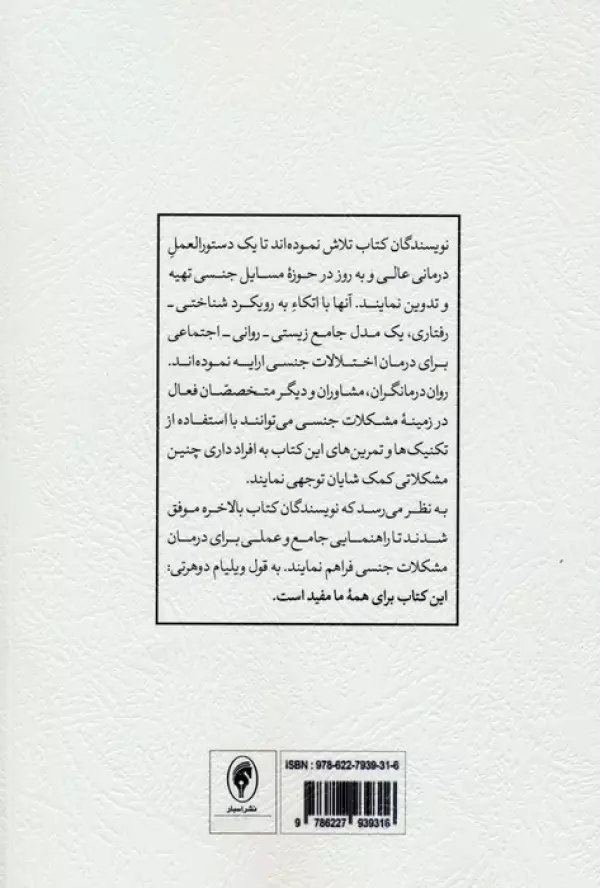 نویسندگان کتاب تلاش نموده‌اند تا یک دستورالعملِ
درمانی عالی و به روز در حوزهٔ مسایل جنسی تهیه
و تدوین نمایند. آنها با اتکاءِ به رویکرد شناختی–
رفتاری، یک مدل جامع زیستی– روانی– اجتماعی
برای درمان اختلالات جنسی ارایه نموده‌اند.
روان‌درمانگران، مشاوران و دیگر متخصصّان فعال
در زمینهٔ مشکلات جنسی می‌توانند با استفاده از
تکنیک‌ها و تمرین‌های این کتاب به افراد داری چنین
مشکلاتی کمک شایان توجهی نمایند.
به نظر می‌رسد که نویسندگان کتاب بالاخره موفق
شدند تا راهنمایی جامع و عملی برای درمان
مشکلات جنسی فراهم نمایند. به قول ویلیام دوهرتی:
این کتاب برای همهٔ ما مفید است.
نشر اسبار
ISBN : 978-622-7939-31-6
9 786227 939316